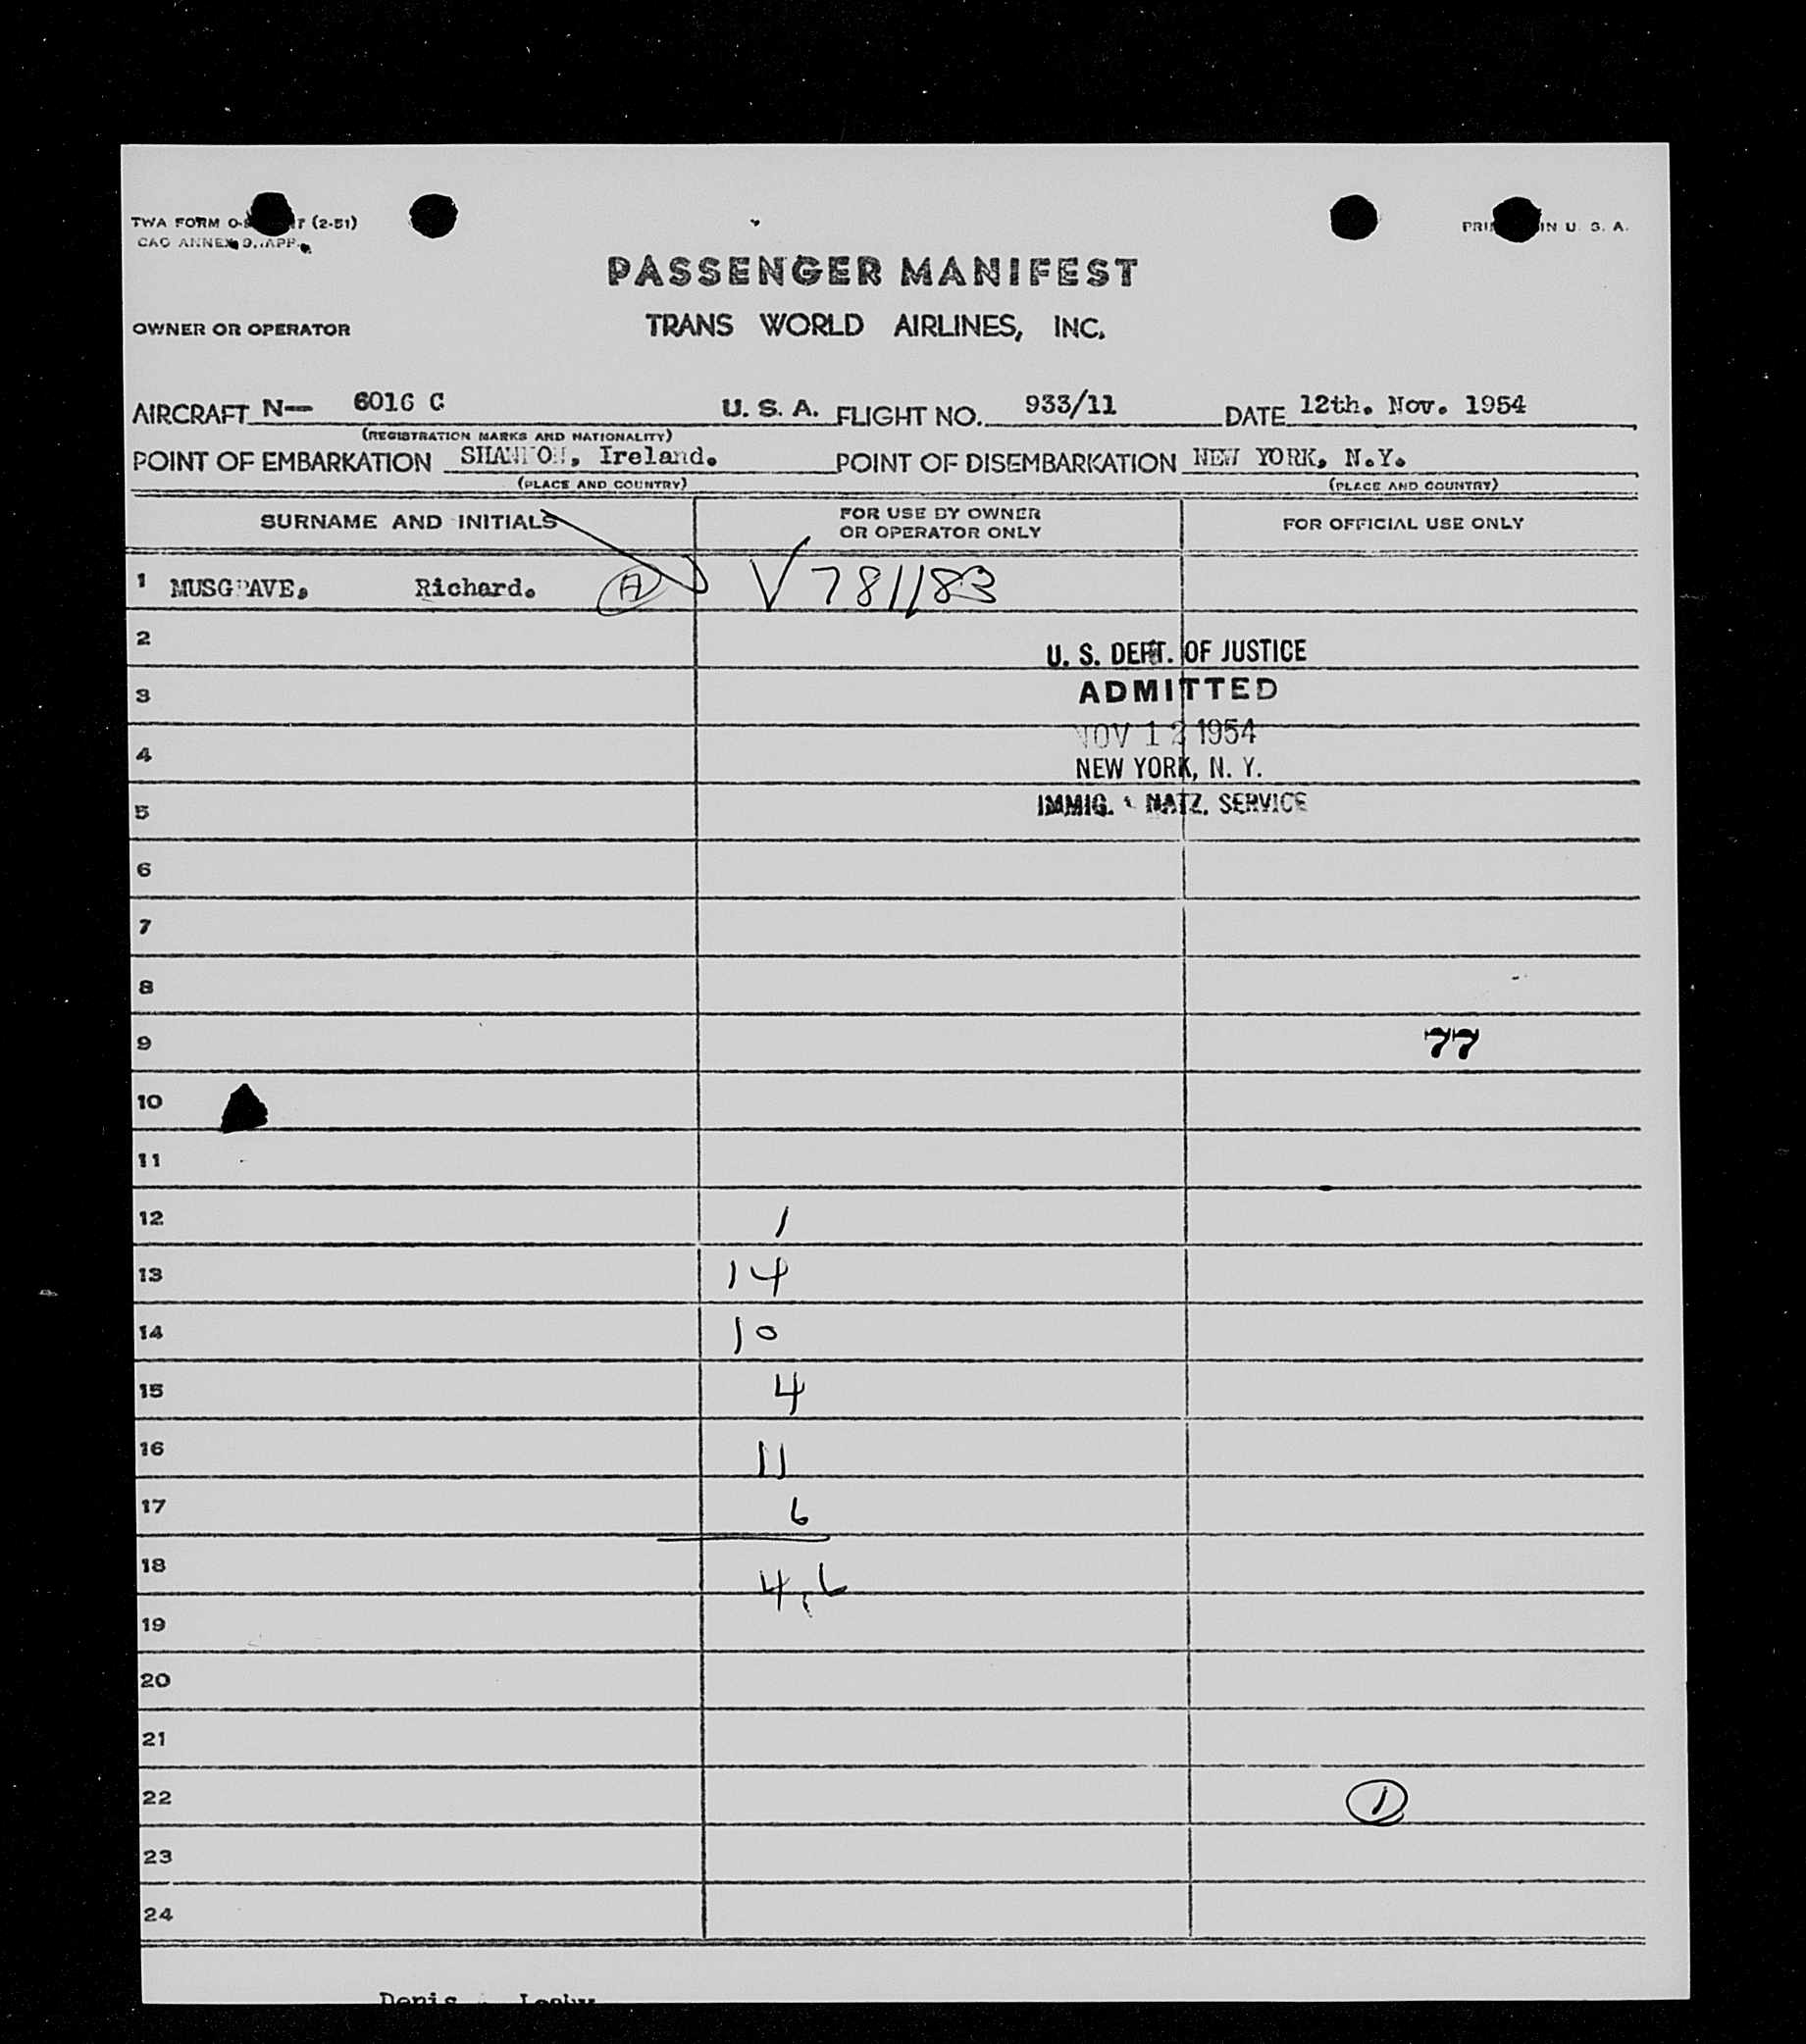 TWA FORM O- (2-51)
PRINTED IN U. S. A.
CAO ANNEX 9, APP.
PASSENGER MANIFEST
OWNER OR OPERATOR
TRANS WORLD AIRLINES, INC.
AIRCRAFT N— 6016 C U. S. A. FLIGHT NO. 933/11 DATE 12th. Nov. 1954
(REGISTRATION MARKS AND NATIONALITY)
POINT OF EMBARKATION SHANNON, Ireland. POINT OF DISEMBARKATION NEW YORK, N.Y.
(PLACE AND COUNTRY) (PLACE AND COUNTRY)
SURNAME AND INITIALS
FOR USE BY OWNER
OR OPERATOR ONLY
FOR OFFICIAL USE ONLY
1 MUSGRAVE, Richard. A V781183
2
U. S. DEPT. OF JUSTICE
3
ADMITTED
NOV 12 1954
4
NEW YORK, N. Y.
5
IMMIG. & NATZ. SERVICE
6
7
8
9 77
10
11
12 1
13 14
14 10
15 4
16 11
17 6
18 46
19
20
21
22 1
23
24
Denis Leahy